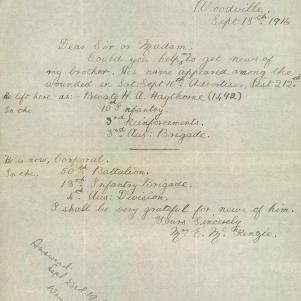 Woodville.
Sept 18th 1916
Dear Sir or Madam.
Could you help, to get news of
my brother. His name appeared among the
wounded in Sat: Sept 16th Advertiser, List 212th
He left here as:- Private H. A. Haythorne (1492)
In the 10th Infantry.
3rd Reinforcements.
3rd Aus: Brigade.
He is now, Corporal.
In the. 50th Battalion.
13th Infantry Brigade.
4th Aus: Division.
I shall be very grateful for news of him.
Yours Sincerely
Mrs E. McKenzie.
Answered
Sept 23rd